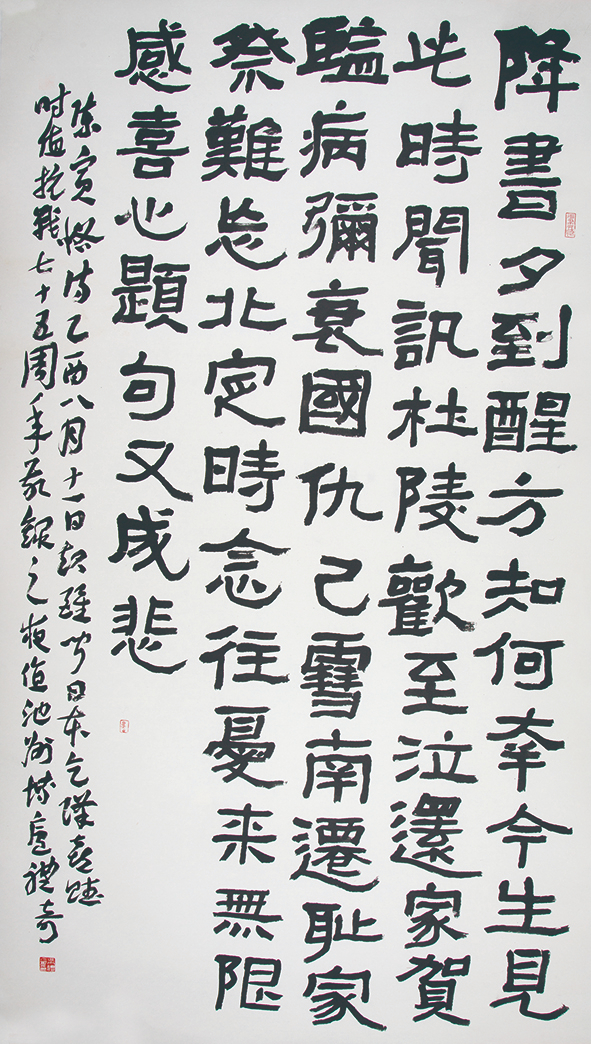 降書夕到醒方知何幸今生見
此時聞訊杜陵歡至泣還家賀
監病彌衰國仇已雪南遷耻家
祭難忘北定時念往憂来無限
感喜心題句又成悲
陳寅恪詩乙酉八月十一日起聞日本乞降喜賦
时值抗戰七十五周年敬錄之池州